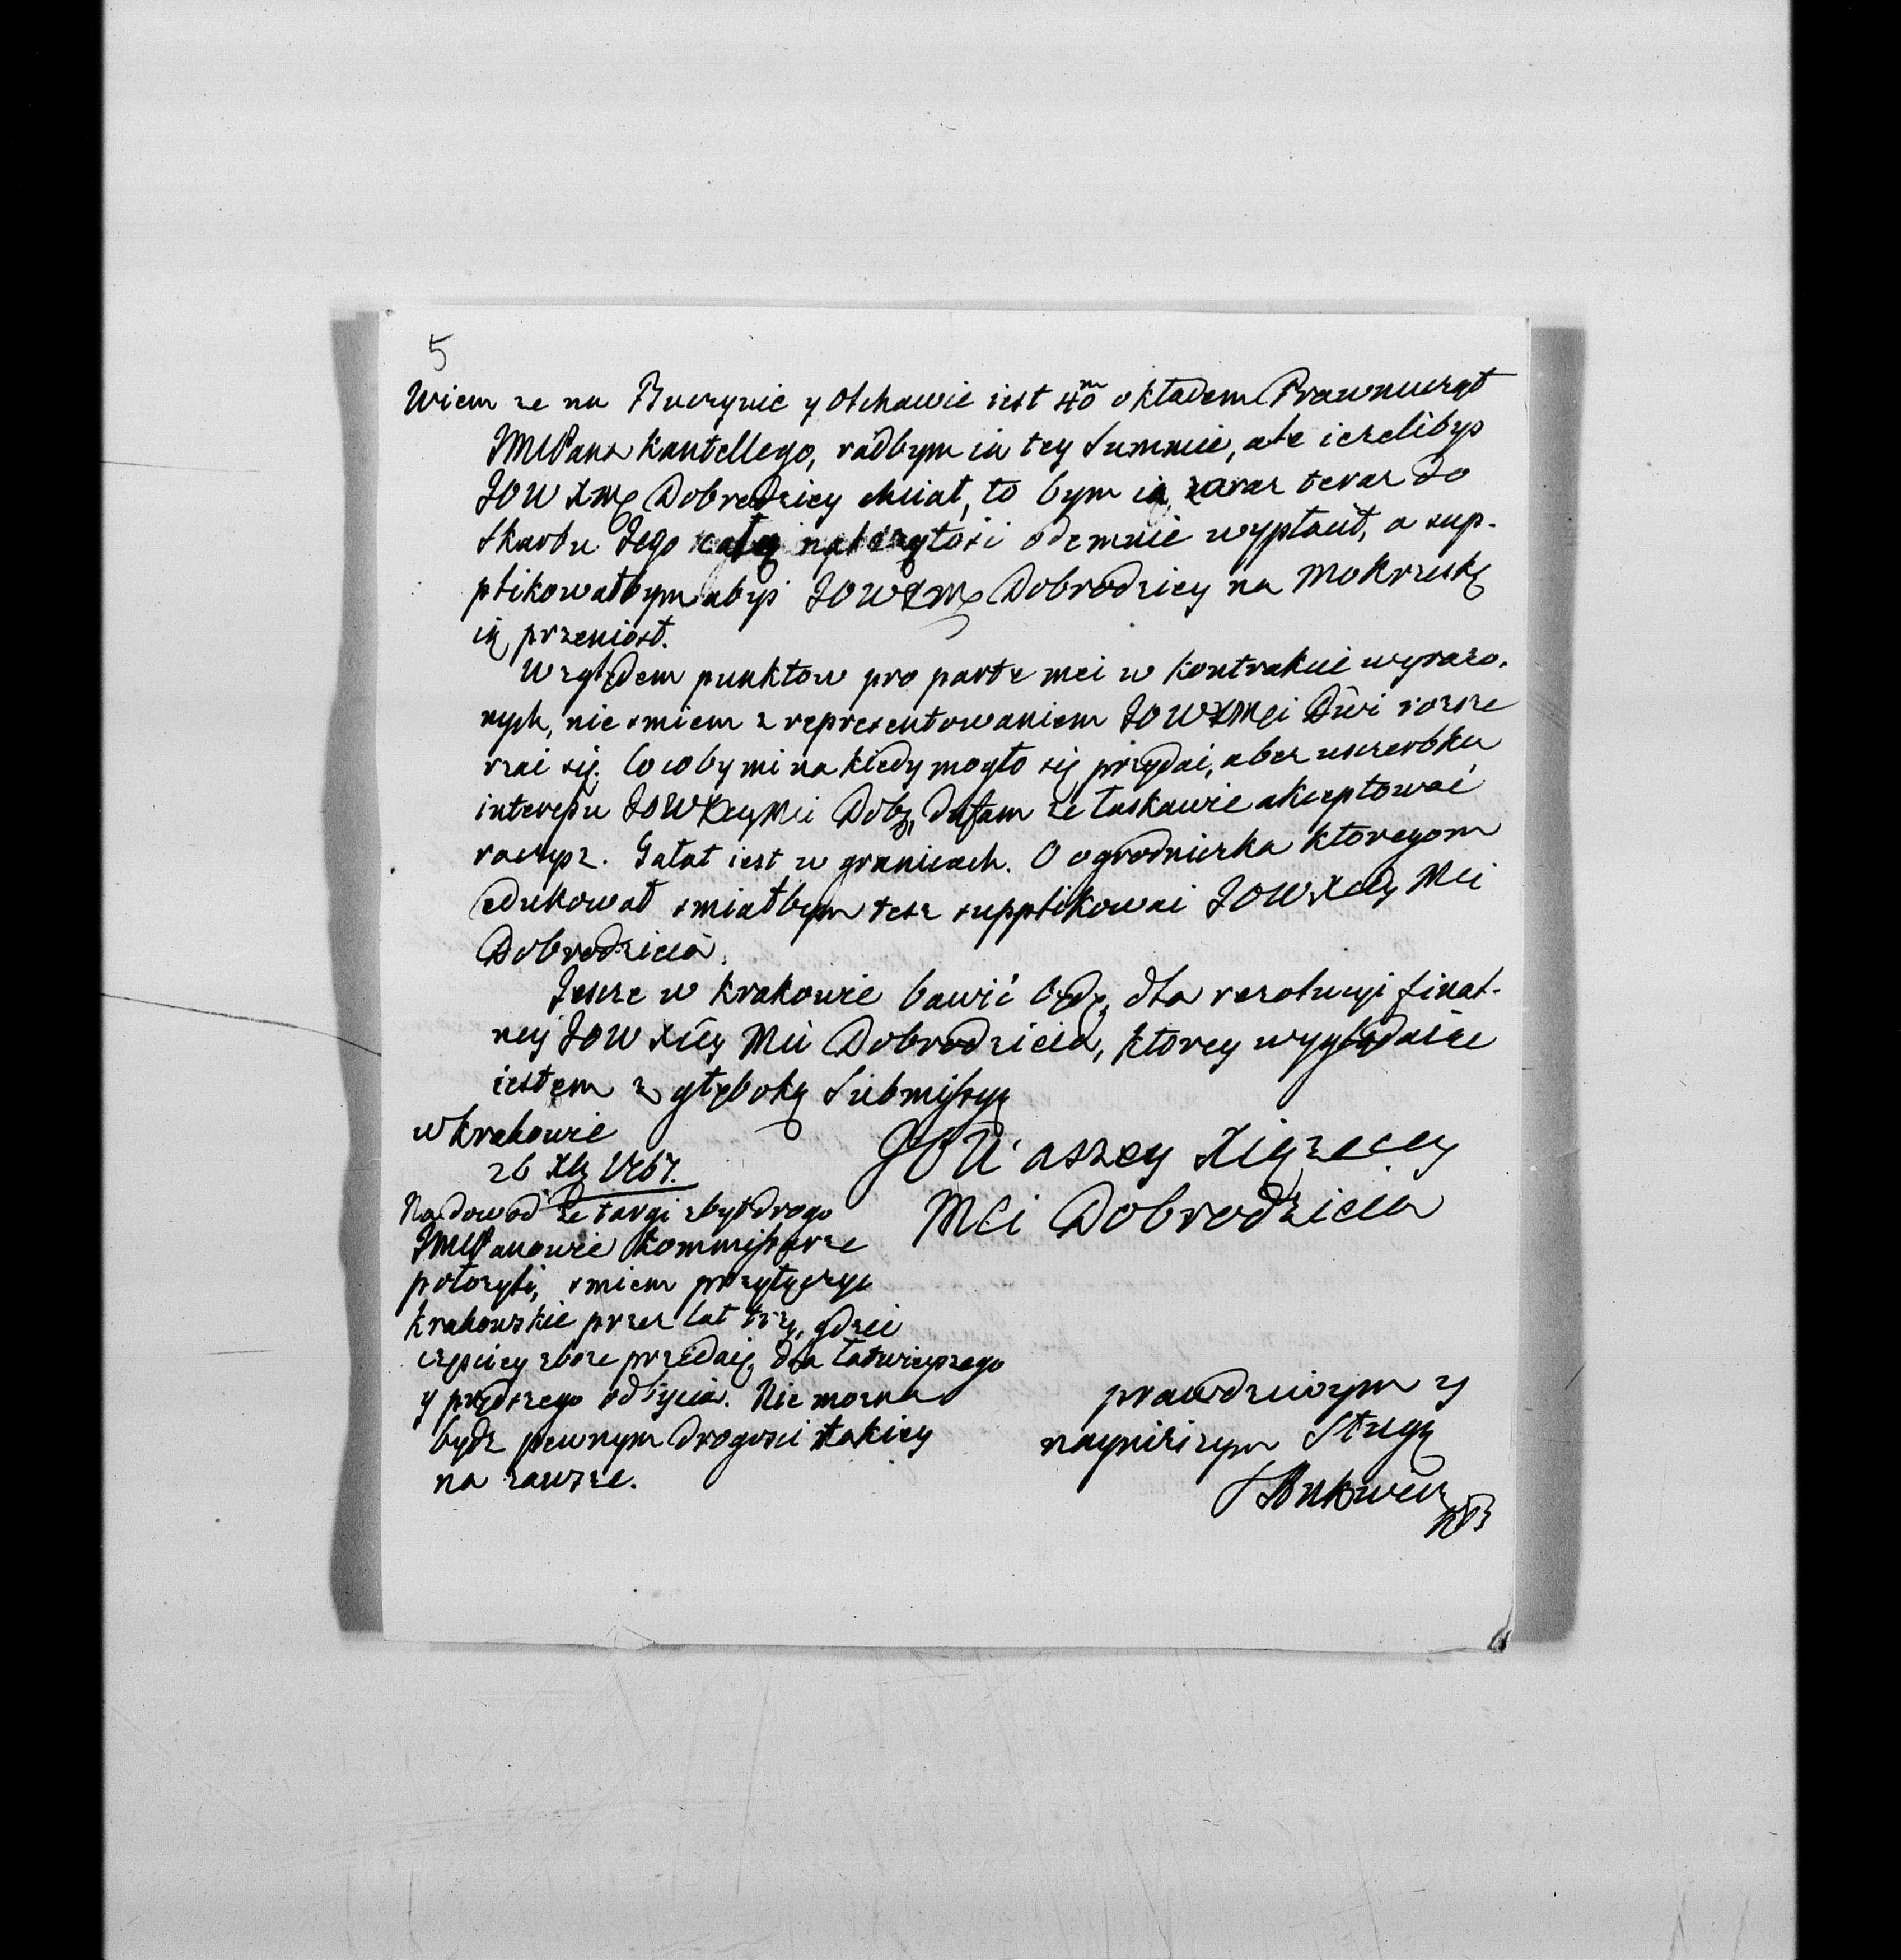 5
Wiem ze na y Olchawie iest 40 m okładem Prawnucząt
JMPana Kantellego, radbym ia tey Summie, ale ieżelibyś
JOWXMć Dobrodziey chciał, to bym ią zaraz teraz do
Skarbu Jego całą należytości odemnie wypłacił, a sup-
plikowałbym abyś JOWXMć Dobrodziey na Mokrzeskę
ią przeniosł.
Względem punktow pro parte mei w kontrakcie wyrażo-
nych, nie smiem z reprezentowaniem JOWXMci Dwi rozsze
rzać się. Co by mi na kiedy mogło się przydać, a bez uszerbku
interessu JOWXcyMci Dobr. dufam ze łaskawie akceptować
raczysz. Gatat iest w granicach. O ogrodniczka ktoregom
edukował smiałbym tesz supplikowai JOWXcey Mci
Dobrodzieia.
Jeszcze w Krakowie bawić będę, dla rezolucyi final-
ney JOWXcey Mci Dobrodzieia, ktorey wyglądaiąc
iestem z głęboką Submissyą
JOWaszey Xiązęcey
Mci Dobrodzieia
w Krakowie
26 Xbr 1767.
Na dowod że targi zbyt drogo
JMPanowie Kommissarze
położyli, smiem przyłączyć
Krakowskie przez lat trzy, gdzie
częsciey zboże przedaią, dla łatwieyszego
y prędszego odbycia. Nie można
bydz pewnym drogosci takiey
na zawsze.
prawdziwym y
nayniższym Sługą